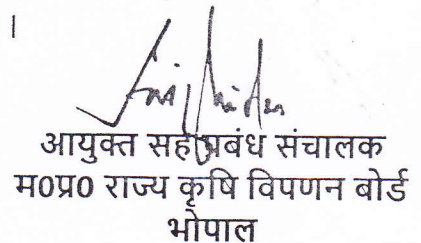 ।
आयुक्त सह प्रबंध संचालक
म0प्र0 राज्य कृषि विपणन बोर्ड
भोपाल